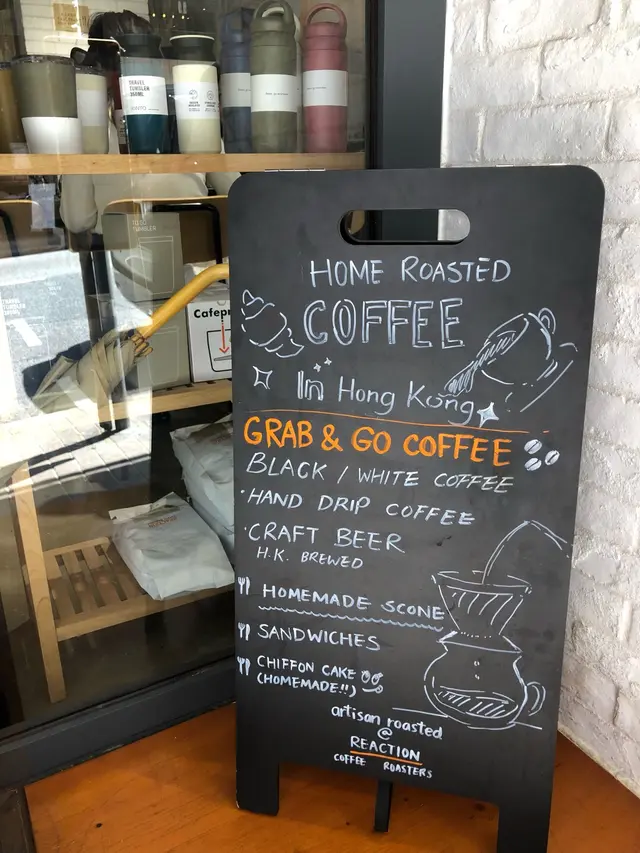 TRAVEL
TUMBLER
TO GO
TUMBLER
Cafepr
HOME ROASTED
COFFEE
In Hong Kong
GRAB & GO COFFEE
BLACK / WHITE COFFEE
·HAND DRIP COFFEE
·CRAFT BEER
H.K. BREWED
HOMEMADE SCONE
SANDWICHES
CHIFFON CAKE
(HOMEMADE!!)
artisan roasted
@
REACTION
COFFEE ROASTERS